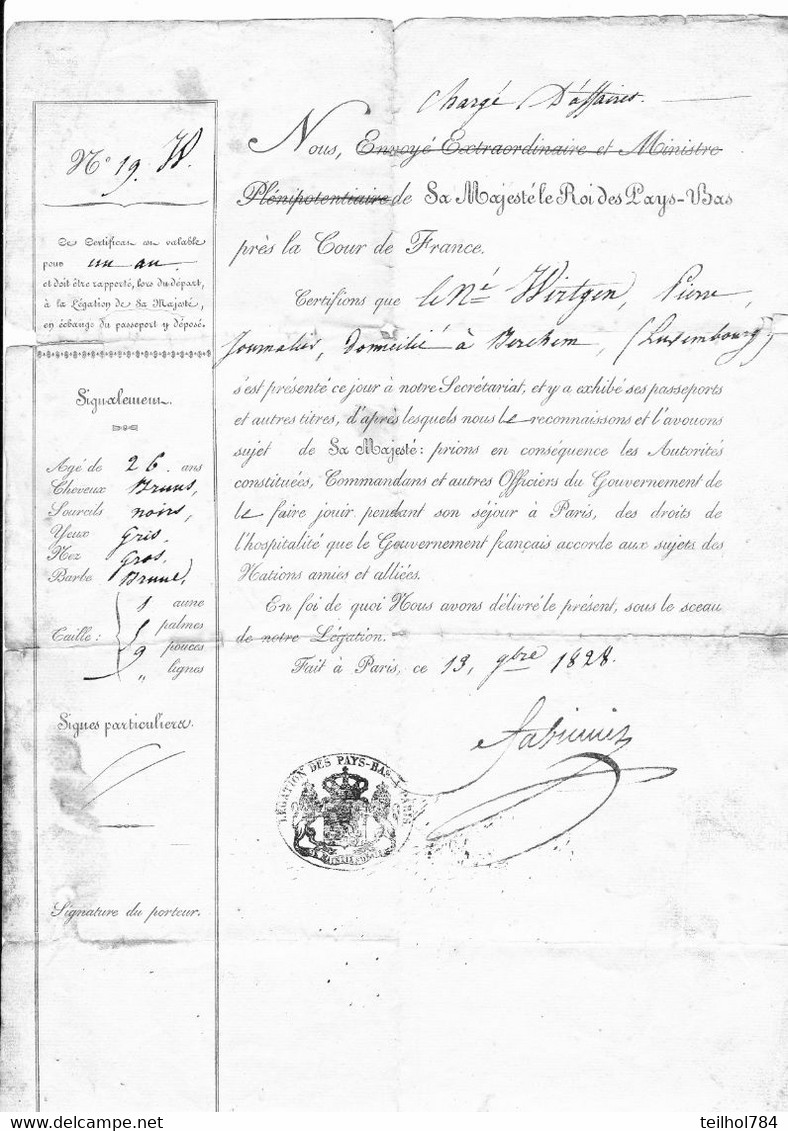 N° 19. W.
Ce Certificat est valable
pour un an.
et doit être rapporté, lors du départ,
à la Légation de Sa Majesté,
en échange du passeport y déposé.
Signalement.
Agé de 26. ans
Cheveux Bruns,
Sourcils noirs,
Yeux Gris.
Nez Gros.
Barbe Brune,
Taille :
1 aune
1 palmes
9 pouces
„ lignes
Signes particuliers.
Signature du porteur.
Chargé D'affaires.
Nous, Envoyé Extraordinaire et Ministre
Plénipotentiaire de Sa Majesté le Roi des Pays-Bas
près la Cour de France.
Certifions que le Né Wirtgen, Pierre,
Journalier, domicilié à Berchem, (Luxembourg)
s'est présenté ce jour à notre Secrétariat, et y a exhibé ses passeports
et autres titres, d'après lesquels nous le reconnaissons et l'avouons
sujet de Sa Majesté : prions en conséquence les Autorités
constituées, Commandans et autres Officiers du Gouvernement de
le faire jouir pendant son séjour à Paris, des droits de
l'hospitalité que le Gouvernement français accorde aux sujets des
Nations amies et alliées.
En foi de quoi Nous avons délivré le présent, sous le sceau
de notre Légation.
Fait à Paris, ce 13. 9bre 1828.
LÉGATION DES PAYS-BAS A PARIS
JE MAINTIENDRAI
teilhol784